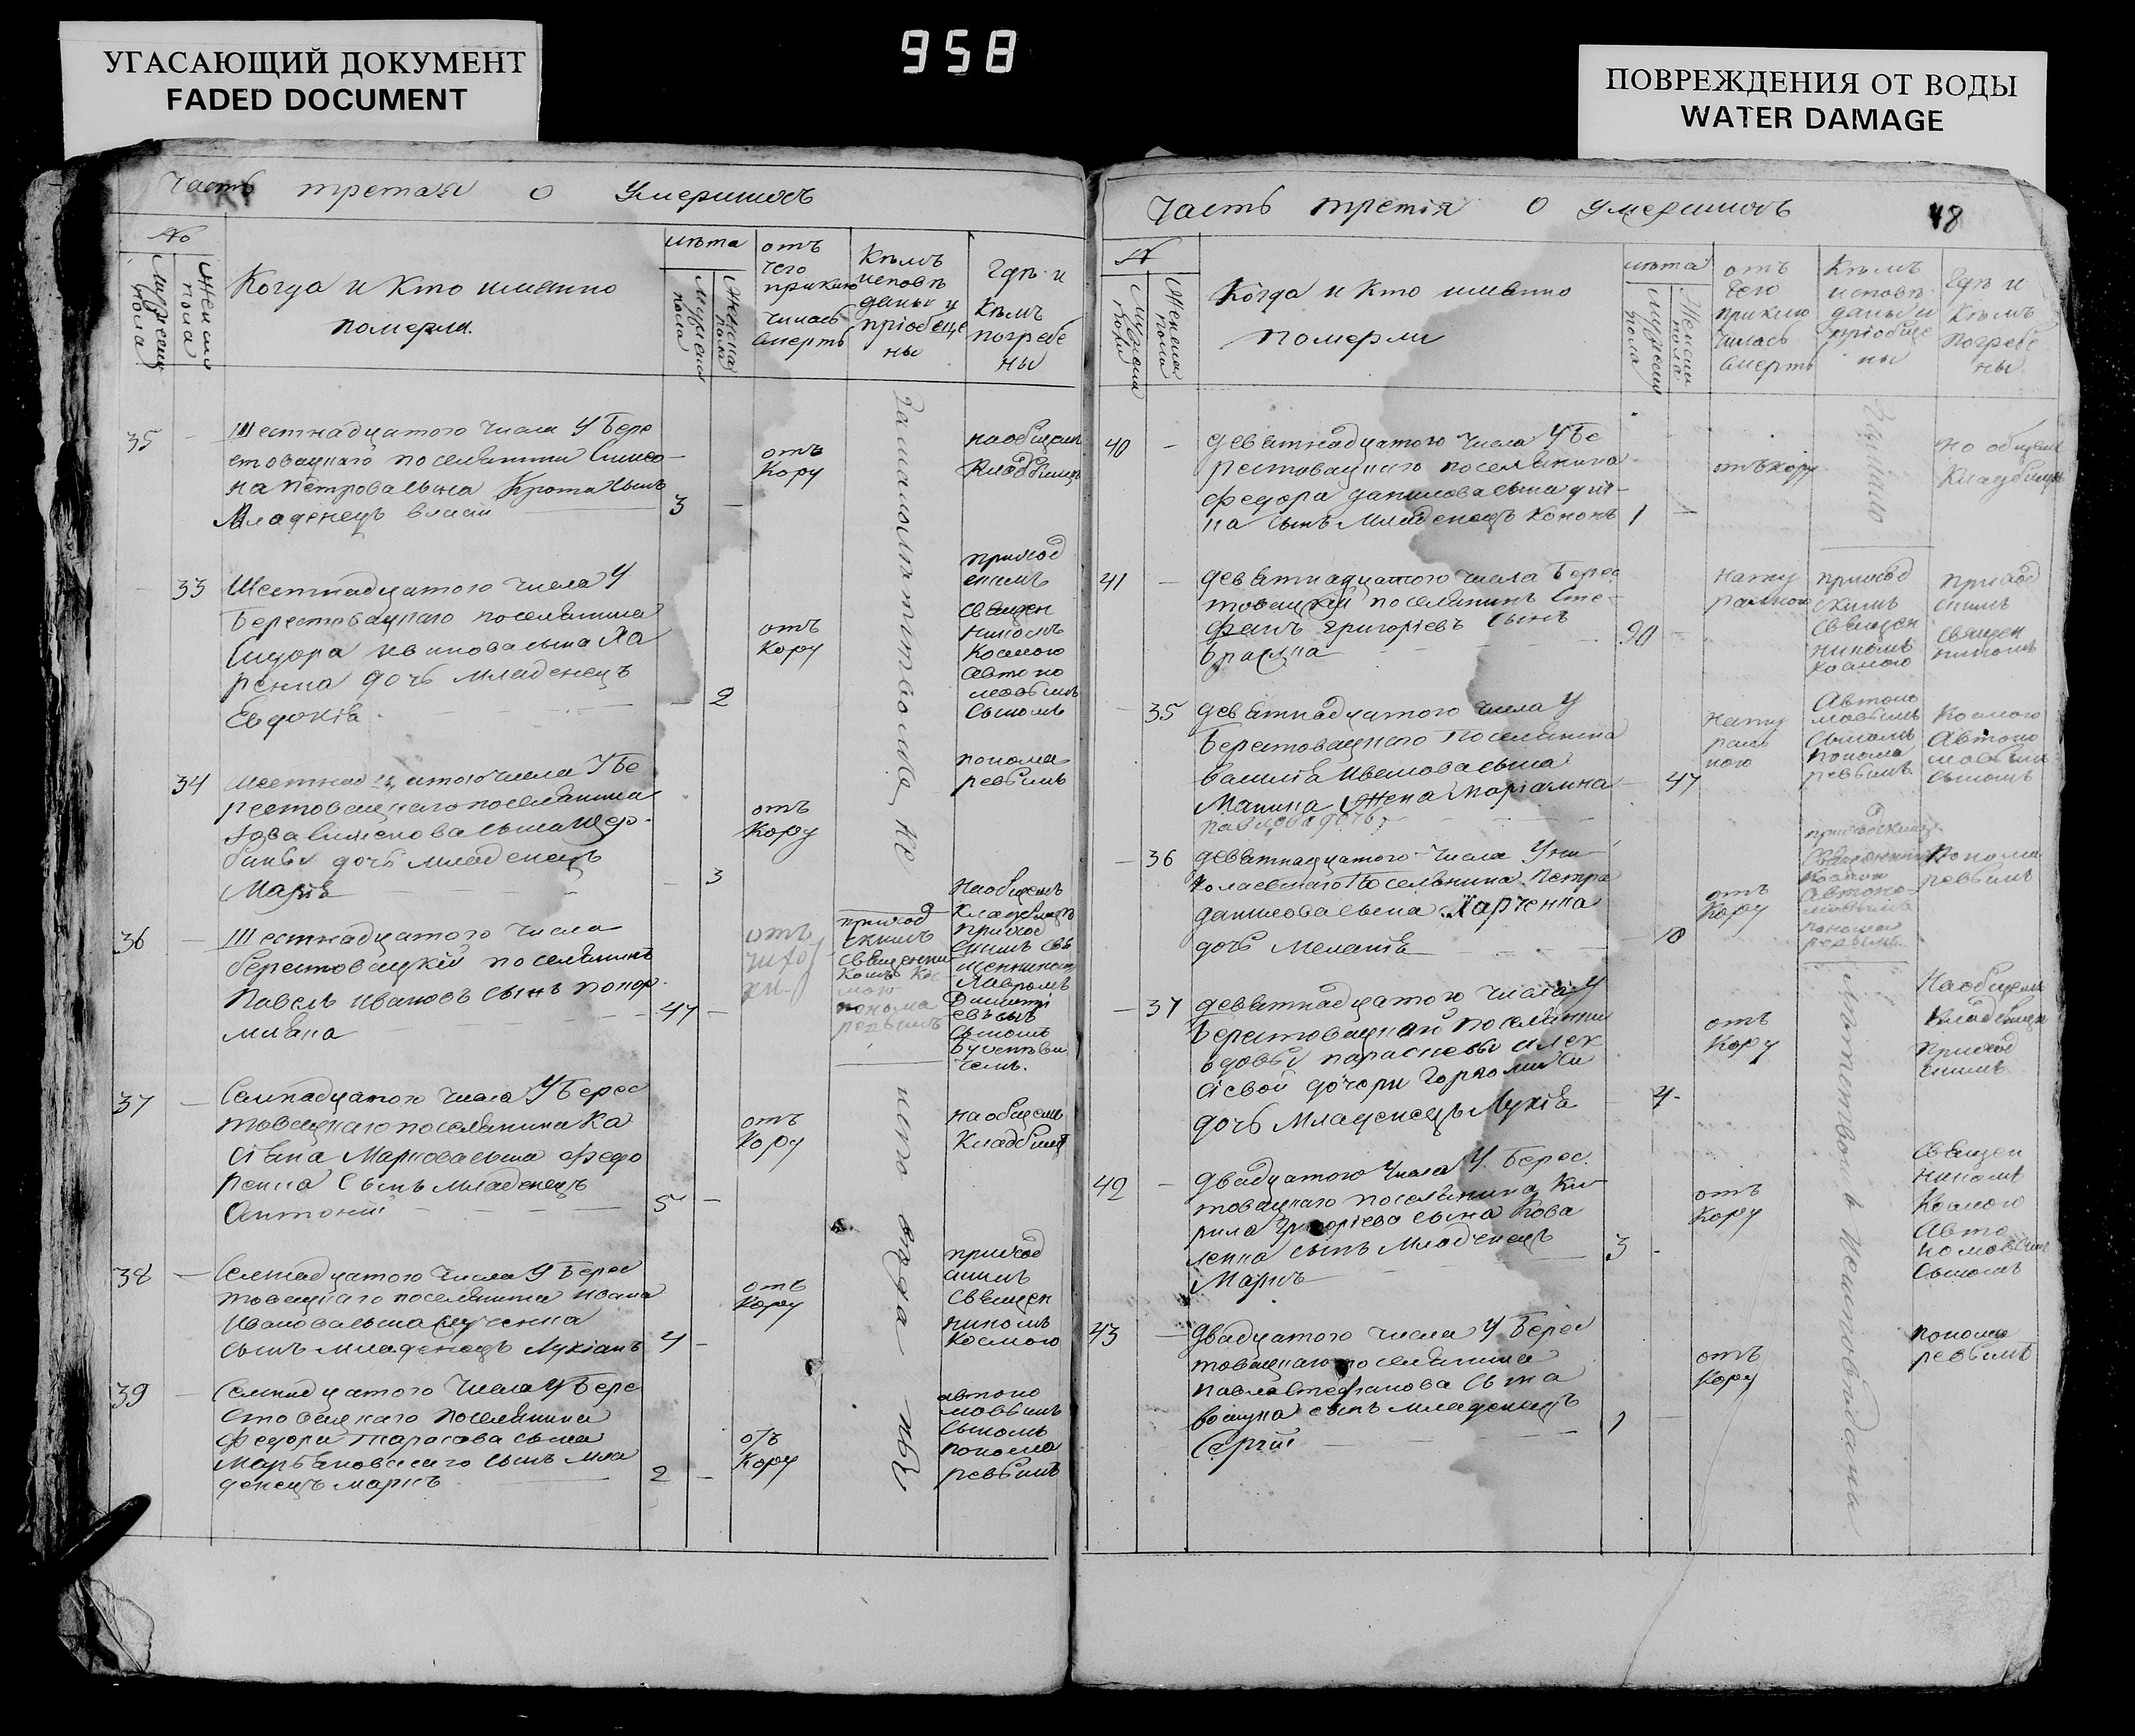 УГАСАЮЩИЙ ДОКУМЕНТ
FADED DOCUMENT
958
ПОВРЕЖДЕНИЯ ОТ ВОДЫ
WATER DAMAGE
Часть третая о умершихъ
№
Мужеска пола
Женска пола
Когда и кто имянно
померли.
лѣта
Мужеска пола
Женска пола
отъ
чего
приклю
чилась
смерть
Кѣмъ
исповѣ
даны и
пріобеще
ны
Гдѣ и
Кѣмъ
погребе
ны
35 -
Шестнадцатого числа У Бере
стовацкаго поселянина Симео
на Петрова сына Крота сынъ
Младенецъ Власій
3 -
отъ
Кору
на общемъ
Кладбищѣ
- 33
Шестнадцатого числа У
Берестовацкаго поселянина
Сидора Иванова сына Ха
ренка дочь младенецъ
Евдокія
- 2
отъ
Кору
приход
скимъ
Священ
никомъ
Космою
Автоно
мовымъ
Сыномъ
34
Шестнадцатого числа У Бе
рестовацкаго поселянина
сына Щер
бины дочь младенецъ
Марія
- 3
отъ
Кору
понома
ревымъ
36 -
Шестнадцатого числа
берестовацкій поселянинъ
Павелъ Ивановъ сынъ
47 -
отъ
приход
скимъ
Священни
комъ Кос
мою
понома
ревымъ
На общемъ
Кладбищѣ
приход
скимъ свя
щенникомъ
Лавромъ
сыномъ
37 -
Семнадцатого числа У Берес
товацкаго поселянина Ка
сіяна Маркова сына Федо
ренка Сынъ младенецъ
Антоній
5 -
отъ
Кору
на общемъ
Кладбищѣ
38 -
Семнадцатого числа У Берес
товацкаго поселянина Ивана
Иванова сына
сынъ младенецъ Лукіанъ
4 -
отъ
Кору
приход
скимъ
Священ
никомъ
Космою
39 -
Семнадцатого числа У Бере
стовацкаго поселянина
Федора Тарасова сына
Марьяновскаго сынъ мла
денецъ Маркъ
2 -
отъ
Кору
автоно
мовымъ
Сыномъ
понома
ревымъ
Часть третія о умершихъ
48
№
Мужеска пола
Женска пола
Когда и кто имянно
померли
лѣта
Мужеска пола
Женска пола
отъ
чего
приклю
чилась
смерть
Кѣмъ
исповѣ
даны и
пріобще
ны
Гдѣ и
Кѣмъ
погребе
ны
40 -
Девятнадцатого числа У Бе
рестовацкаго поселянина
Федора Данилова сына
сынъ Младенецъ Кононъ
1
отъ кору
на общемъ
Кладбищѣ
41 -
Девятнадцатого числа Берес
товацкій поселянинъ Сте
фанъ Григоріевъ Сынъ
90 -
нату
ралною
приход
скимъ
Священ
никомъ
Космою
Автоно
мовымъ
Сыномъ
понома
ревымъ
приход
скимъ
Священ
никомъ
Космою
Автоно
мовымъ
сыномъ
- 35
Девятнадцатого числа У
Берестовацкаго Поселянина
Василія Иванова сына
жена Маріамна
Павлова дочь
- 47
нату
раль
ною
- 36
Девятнадцатого числа У Ни
колаевскаго Поселянина Петра
Данилова сына Харченка
дочь Меланія
- 10
отъ
Кору
приходскимъ
Священник
Космою
Автоно
мовымъ
понома
ревымъ
Понома
ревымъ
- 37
Девятнадцатого числа У
Берестовацкой поселянки
вдовы Параскевы Алек
сіевой дочери
дочь Младенецъ Лукія
4 -
отъ
Кору
На общемъ
Кладбищѣ
Приход
скимъ
42 -
Двадцатого числа У Берес
товацкаго поселянина Ки
рила Григоріева сына Кова
ленка сынъ Младенецъ
Маркъ
3 -
отъ
Кору
Священ
никомъ
Космою
Авто
номовымъ
Сыномъ
43 -
Двадцатого числа У Берес
товацкаго поселянина
Павла Стефанова Сына
сынъ младенецъ
Сергій
1
отъ
Кору
понома
ревымъ